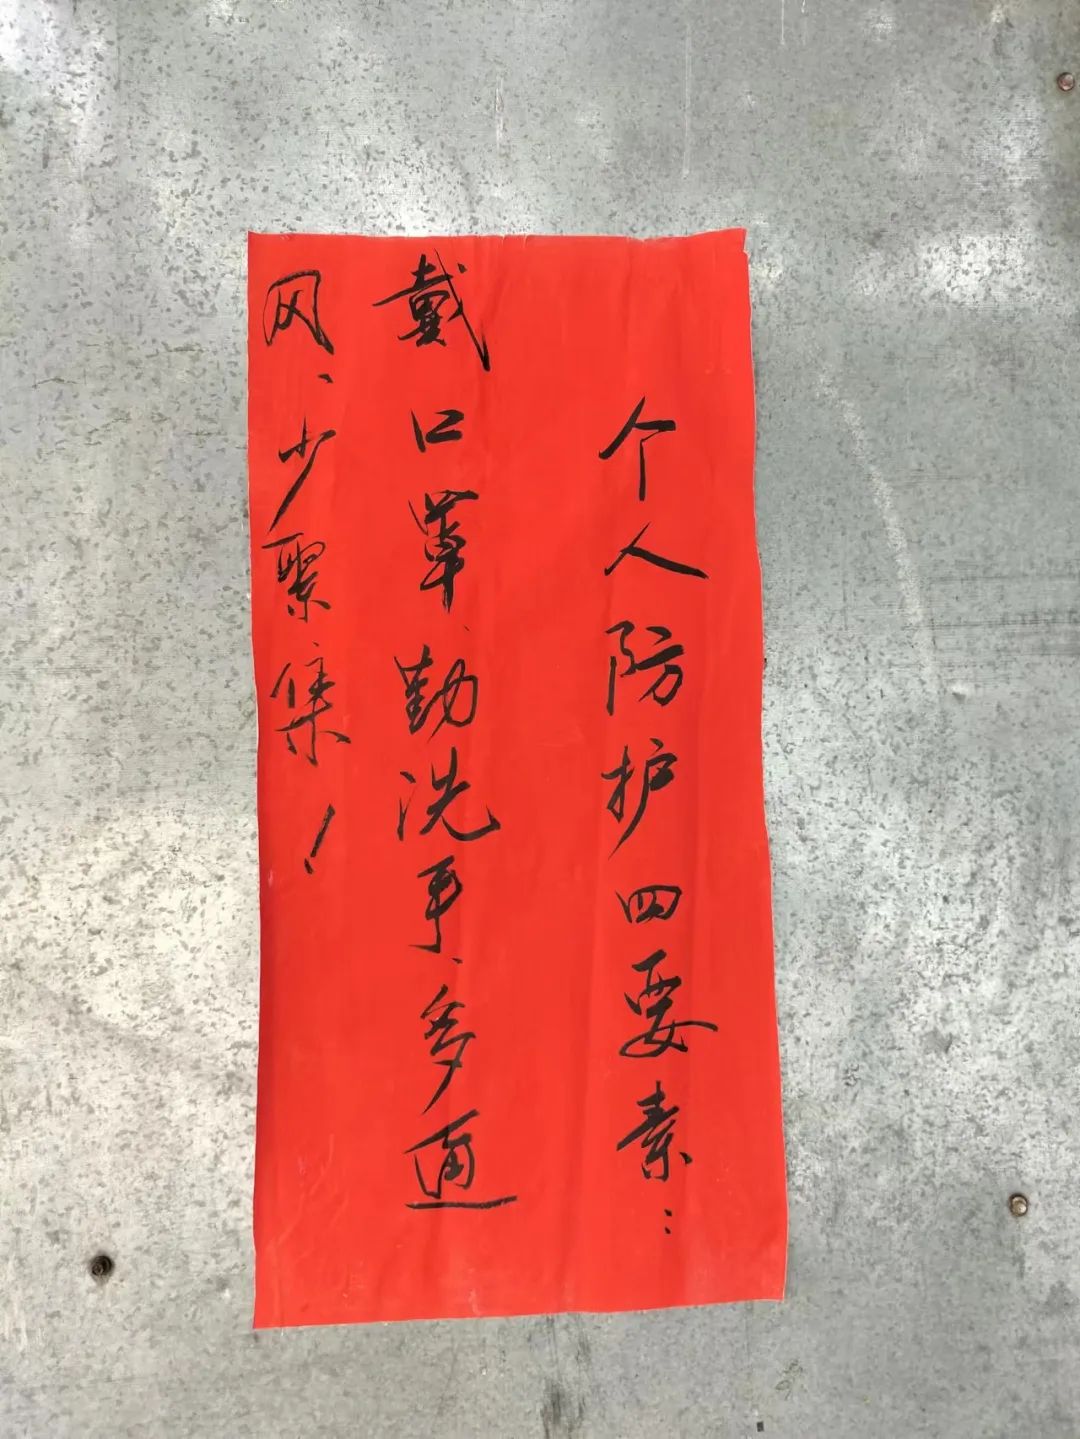 个人防护四要素：
戴口罩、勤洗手、多通
风、少聚集！